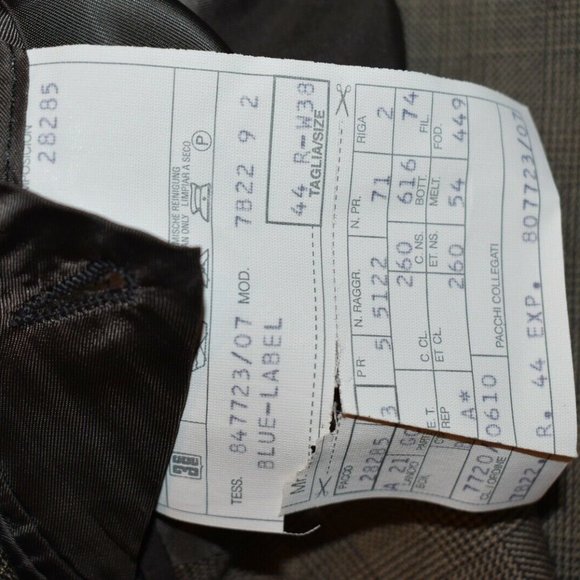 28285
MISCHE REINIGUNG
AN ONLY LIMPIAR A SECO
P
TESS. 847723/07 MOD. 7822 9 2
BLUE-LABEL
44 R-W38
TAGLIA/SIZE
PR N. RAGGR. N. PR. RIGA
5 5122 71 2
C. CL. C. NS. BOTT. FIL.
260 616 74
ET CL. ET NS. MELT. FOD.
260 54 449
PACCHI COLLEGATI
R. 44 EXP. 807723/07
28285 3
A 21
E.T.
REP A*
7720/0610
7822